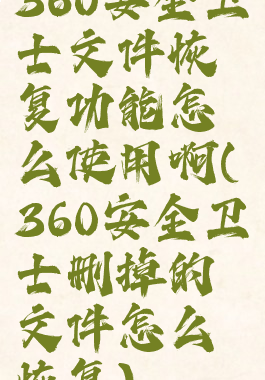 360安全卫
士文件恢
复功能怎
么使用啊(
360安全卫
士删掉的
文件怎么
恢复)